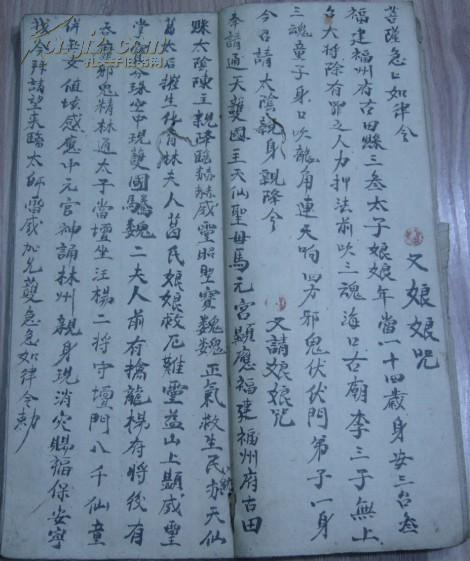 菩薩急急如律令
又娘娘咒
福建福州府古田縣三叁太子娘娘年當一十四歲身安三台叁
年大將除有罪之人力押法前吹三魂海口古廟李三子無上
三魂童子身口吹龍角連天响四方邪鬼伏伏門弟子一身
今召請太陰親身親降令
又請娘娘咒
奉請通天護國主天仙聖母馬元宮顯應福建福州府古田
縣太陰陳主親降臨赫赫威靈照聖寶巍巍正氣救生民亦天仙
葛太后握生化有林夫人葛氏娘娘救厄難靈益山上顯威聖
堂 空中現護國驕魏二夫人前有擒龍楊存將後有
太府邪鬼精林通太子當壇坐汪楊二將守壇門八千仙童
侍 女値壇感應中元宮神誦林州親身現消災賜福保安寧
我今拜請望來臨太師雷威加兄護急急如律令勅